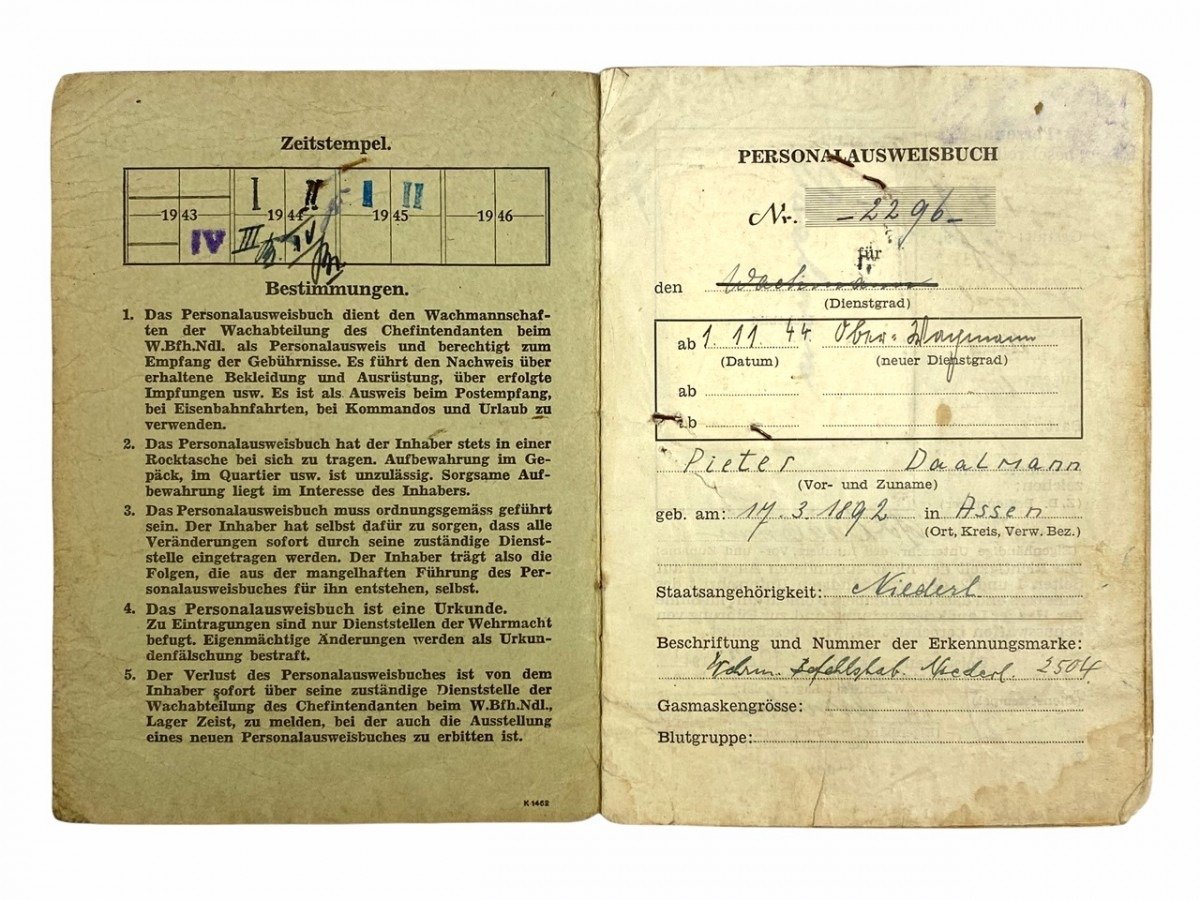 Zeitstempel.
I II I II
19 43 19 44 19 45 19 46
IV III IV
Bestimmungen.
1. Das Personalausweisbuch dient den Wachmannschaf-
ten der Wachabteilung des Chefintendanten beim
W.Bfh.Ndl. als Personalausweis und berechtigt zum
Empfang der Gebührnisse. Es führt den Nachweis über
erhaltene Bekleidung und Ausrüstung, über erfolgte
Impfungen usw. Es ist als Ausweis beim Postempfang,
bei Eisenbahnfahrten, bei Kommandos und Urlaub zu
verwenden.
2. Das Personalausweisbuch hat der Inhaber stets in einer
Rocktasche bei sich zu tragen. Aufbewahrung im Ge-
päck, im Quartier usw. ist unzulässig. Sorgsame Auf-
bewahrung liegt im Interesse des Inhabers.
3. Das Personalausweisbuch muss ordnungsgemäss geführt
sein. Der Inhaber hat selbst dafür zu sorgen, dass alle
Veränderungen sofort durch seine zuständige Dienst-
stelle eingetragen werden. Der Inhaber trägt also die
Folgen, die aus der mangelhaften Führung des Per-
sonalausweisbuches für ihn entstehen, selbst.
4. Das Personalausweisbuch ist eine Urkunde.
Zu Eintragungen sind nur Dienststellen der Wehrmacht
befugt. Eigenmächtige Änderungen werden als Urkun-
denfälschung bestraft.
5. Der Verlust des Personalausweisbuches ist von dem
Inhaber sofort über seine zuständige Dienststelle der
Wachabteilung des Chefintendanten beim W.Bfh.Ndl.,
Lager Zeist, zu melden, bei der auch die Ausstellung
eines neuen Personalausweisbuches zu erbitten ist.
K 1462
PERSONALAUSWEISBUCH
Nr. -2296-
für
den Wachmann
(Dienstgrad)
ab 1. 11. 44. Ober-Wachmann
(Datum) (neuer Dienstgrad)
ab
ab
Pieter Daalmann
(Vor- und Zuname)
geb. am: 17.3.1892 in Assen
(Ort, Kreis, Verw. Bez.)
Staatsangehörigkeit: Niederl.
Beschriftung und Nummer der Erkennungsmarke:
Wehrm. Befehlshab. Niederl. 2504
Gasmaskengrösse:
Blutgruppe: